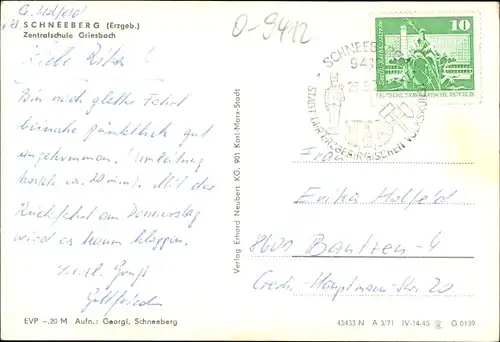 G. Halfeld
SCHNEEBERG (Erzgeb.)
Zentralschule Griesbach
0-9412
Liebe
Bin nach glatter Fahrt
beinahe pünktlich gut
angekommen. Umleitung
kostete ca. 20 min. Mit der
Rückfahrt am Donnerstag
wird es kaum klappen.
Gruß
Gottfried
EVP -.20 M Aufn.: Georgi, Schneeberg
Verlag Erhard Neubert KG, 901 Karl-Marx-Stadt
10
DEUTSCHE DEMOKRATISCHE REPUBLIK
SCHNEEBERG
941
STADT DER ERZGEBIRGISCHEN VOLKSKUNST
Frau
Erika Halfeld
8601 Bautzen-4
Gerh.-Hauptmann-Str. 20
45433 N A 3/71 IV-14-45 G 0139